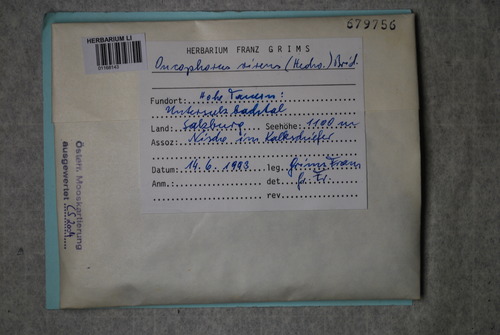 679756
HERBARIUM LI
HERBARIUM FRANZ GRIMS
Oncophorus virens (Hedw.) Brid.
Fundort: Hohe Tauern:
Land: Salzburg Seehöhe: 1100 m
Assoz: Nische im Kalkschiefer
Datum: 14.6.1993 leg. Grims Franz
Anm.: det. Gr. Fr.
rev.
Österr. Mooskartierung
ausgewertet